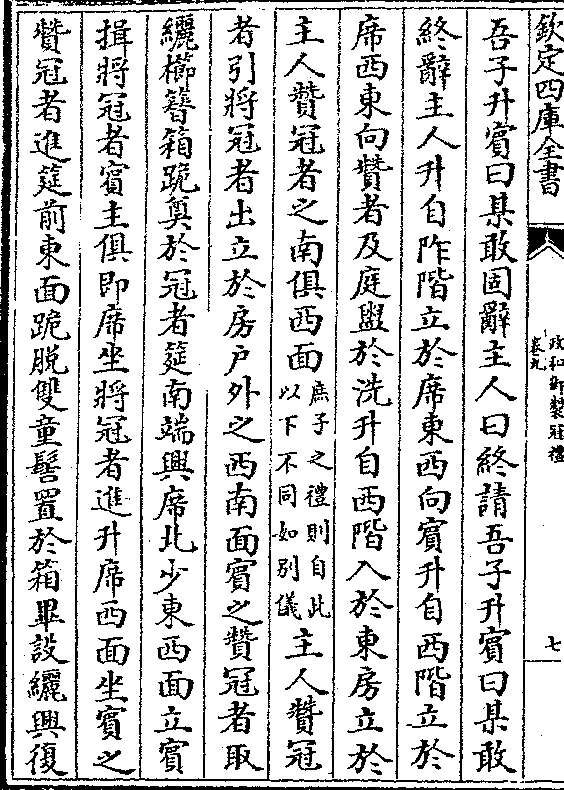 欽定四庫全書
政和御製冠禮
卷九
七
吾子升賓曰某敢固辭主人曰終請吾子升賓曰某敢
終辭主人升自阼階立於席東西向賓升自西階立於
席西東向贊者及庭盥於洗升自西階入於東房立於
主人贊冠者之南俱西面庶子之禮則自此以下不同如别儀主人贊冠
者引將冠者出立於房户外之西南面賓之贊冠者取
纚櫛簪箱跪奠於冠者筵南端興席北少東西面立賓
揖將冠者賓主俱即席坐將冠者進升席西面坐賓之
贊冠者進筵前東面跪脱雙童髻置於箱畢設纚興復